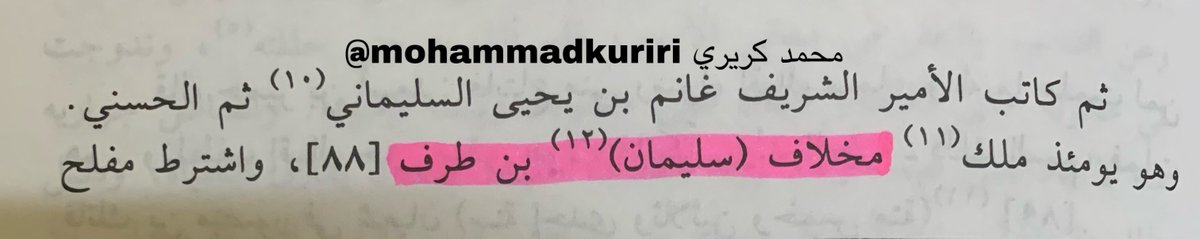 محمد كريري @mohammadkuriri
ثم كاتب الأمير الشريف غانم بن يحيى السليماني(١٠) ثم الحسني.
وهو يومئذ ملك(١١) مخلاف (سليمان)(١٢) بن طرف [٨٨]، واشترط مفلح